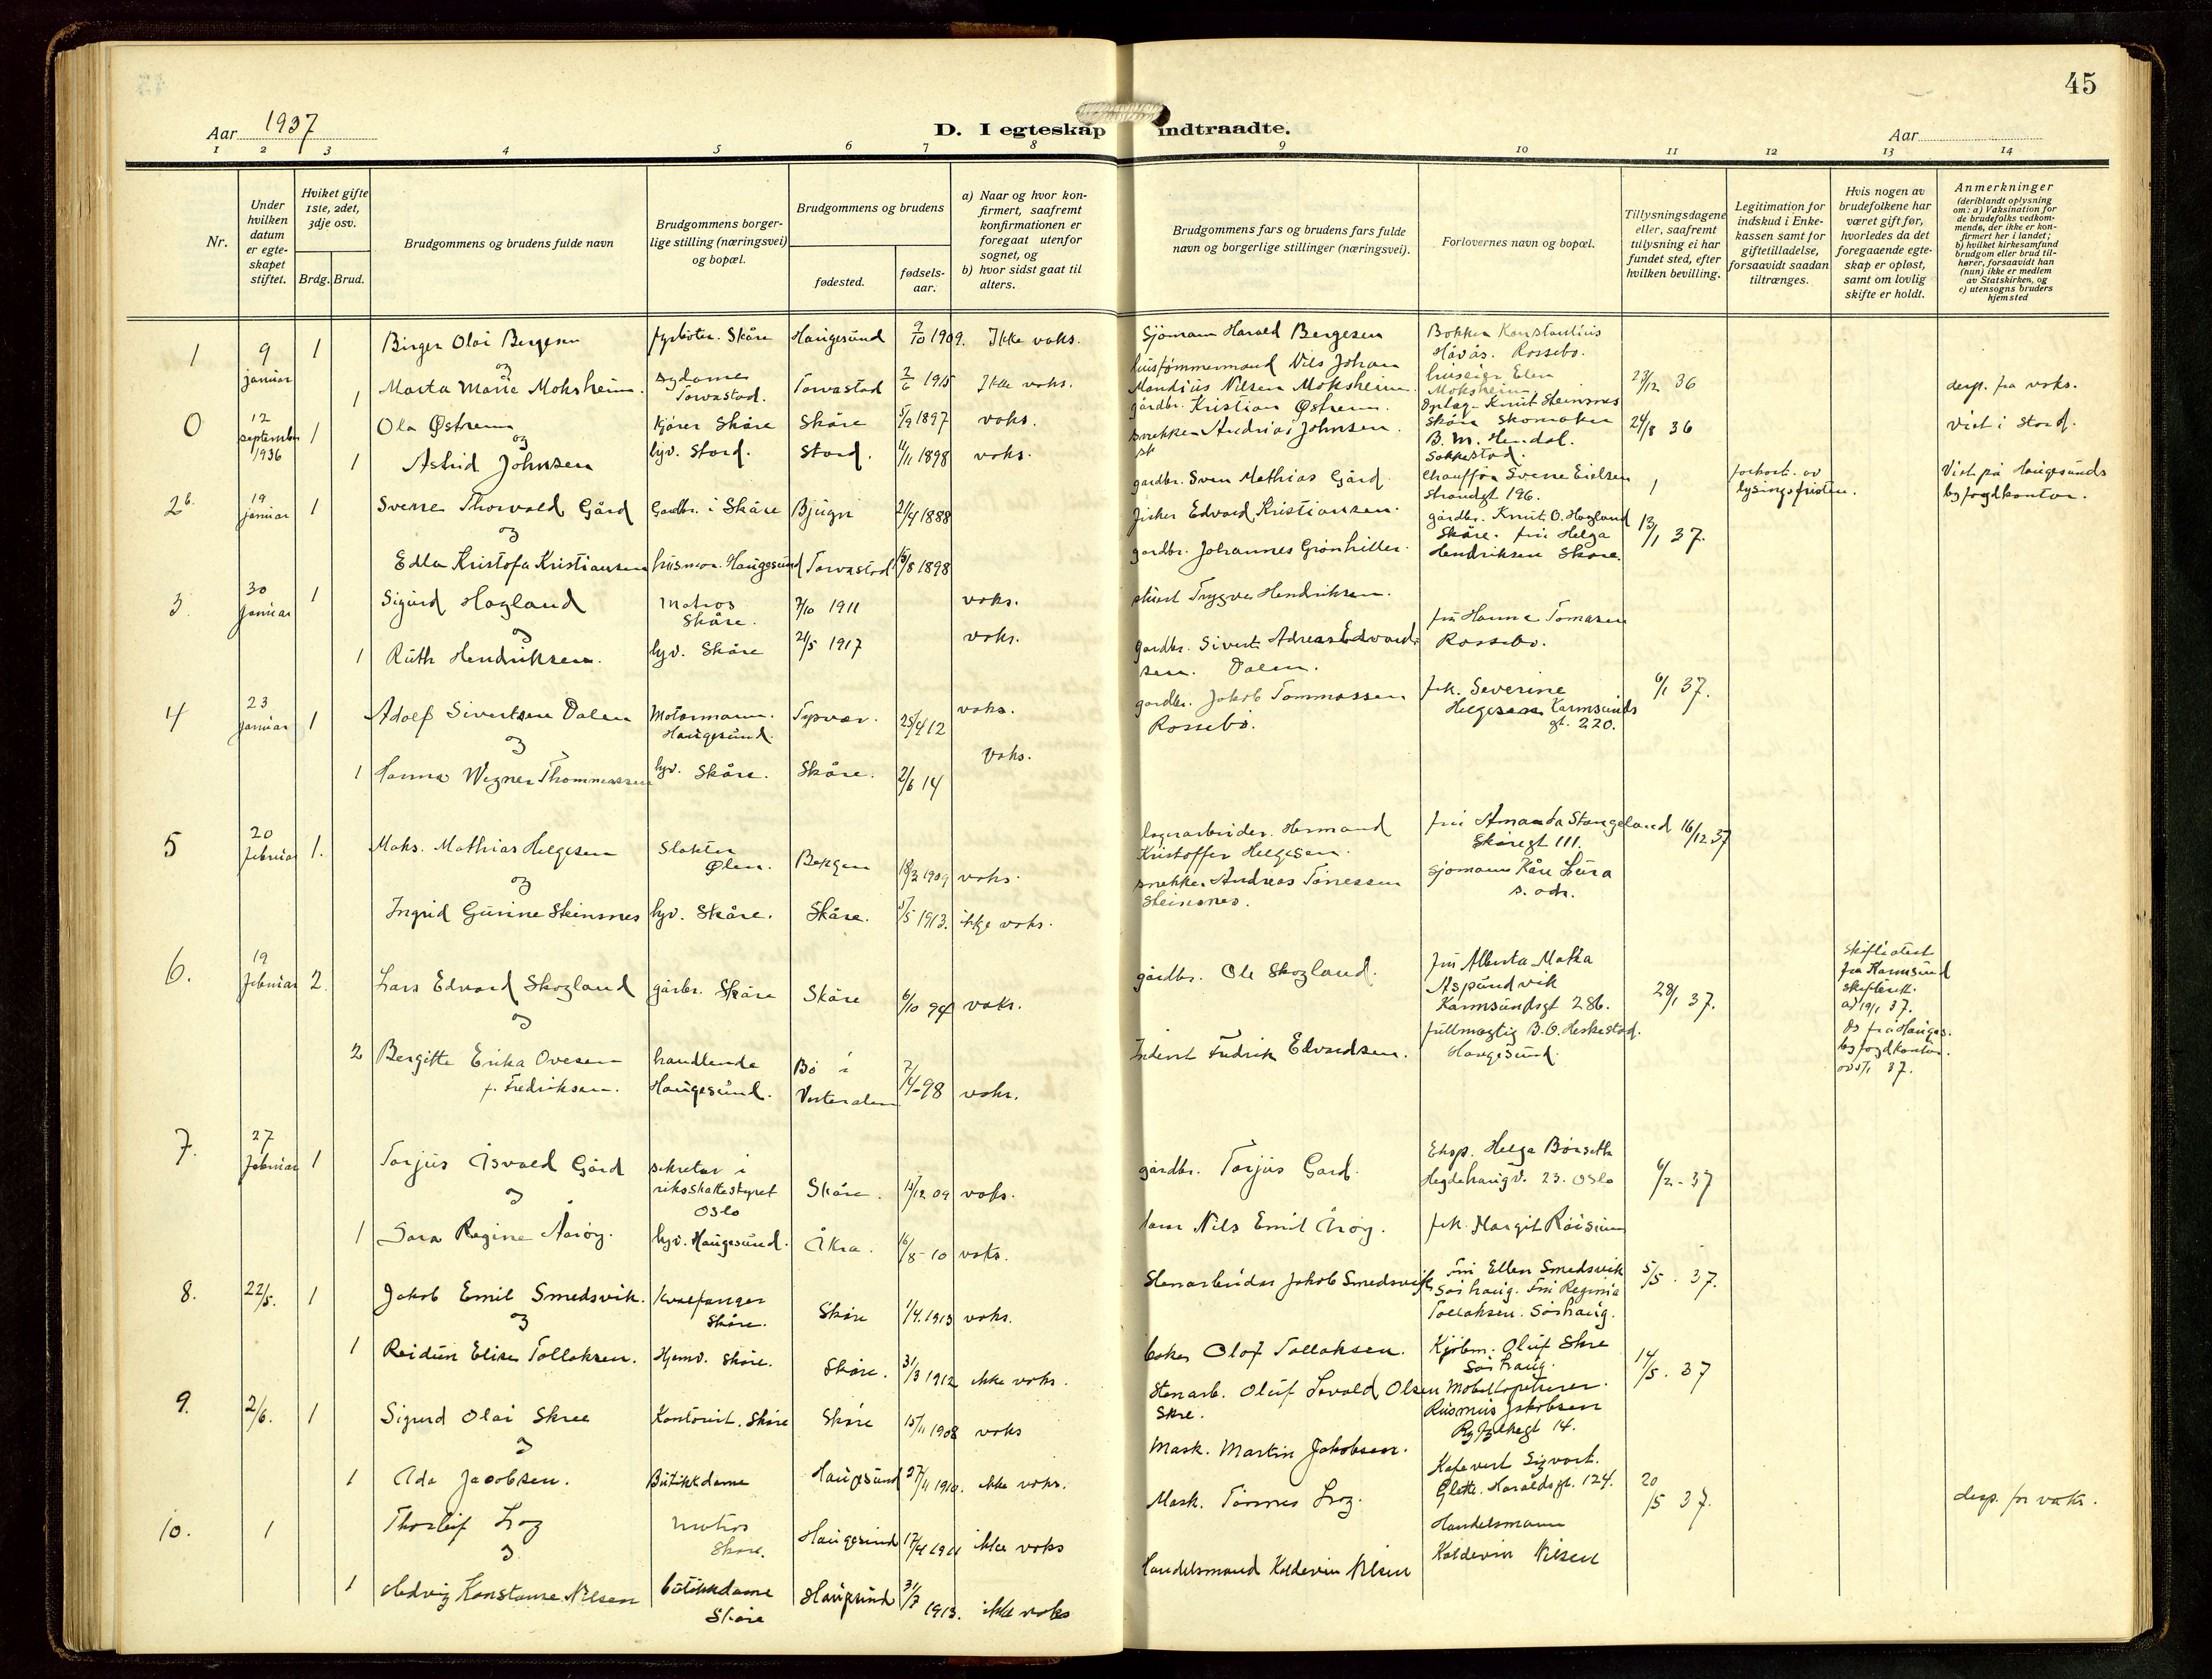 45
Aar 1937
D. I egteskap indtraadte.
Aar
1 2 3 4 5 6 7 8 9 10 11 12 13 14
Nr.
Under
hvilken
datum
er egte-
skapet
stiftet.
Hviket gifte
1ste, 2det,
3dje osv.
Brdg. Brud.
Brudgommens og brudens fulde navn
Brudgommens borger-
lige stilling (næringsvei)
og bopæl.
Brudgommens og brudens
fødested.
fødsels-
aar.
a) Naar og hvor kon-
firmert, saafremt
konfirmationen er
foregaat utenfor
sognet, og
b) hvor sidst gaat til
alters.
Brudgommens fars og brudens fars fulde
navn og borgerlige stillinger (næringsvei).
Forlovernes navn og bopæl.
Tillysningsdagene
eller, saafremt
tillysning ei har
fundet sted, efter
hvilken bevilling.
Legitimation for
indskud i Enke-
kassen samt for
giftetilladelse,
forsaavidt saadan
tiltrænges.
Hvis nogen av
brudefolkene har
været gift før,
hvorledes da det
foregaaende egte-
skap er opløst,
samt om lovlig
skifte er holdt.
Anmerkninger
(deriblandt oplysning
om: a) Vaksination for
de brudefolks vedkom-
mende, der ikke er kon-
firmert her i landet;
b) hvilket kirkesamfund
brudgom eller brud til-
hører, forsaavidt han
(hun) ikke er medlem
av Statskirken, og
c) utensogns bruders
hjemsted
1 9 januar 1 Birger Olai Bergesen fyrbøter. Skåre Haugesund 9/10 1909. Ikke vaks.
og
1 Marta Marie Moksheim. sydame Torvastad. Torvastad 2/6 1915 Ikke vaks.
0 12 september 1936 1 Ola Østrem Kjører Skåre Skåre 5/9 1897 vaks.
og
1 Astrid Johnsen hjv. Stord. Stord. 11/11 1898 vaks.
2b. 19 januar 1 Sverre Thorvald Gård Gardbr. i Skåre Bjugn 2/4 1888
og
Edla Kristofa Kristiansen husmor. Haugesund Torvastad 15/8 1898
3. 30 januar 1 Sigurd Hagland Matros Skåre. 7/10 1911 vaks.
og
1 Ruth Hendriksen. hjv. Skåre 21/5 1917 vaks.
4 23 januar 1 Adolf Sivertsen Dalen Motormann. Haugesund. Tysvær. 25/4 12 vaks.
og
1 Hanna Wegner Thommassen hjv. Skåre. Skåre. 2/6 14 vaks.
5 20 februar 1. Maks. Mathias Helgesen Slakter Ølen. Bergen 18/3 1909 vaks.
og
Ingrid Gurine Steinsnes hjv. Skåre. Skåre. 5/5 1913. ikkje vaks.
6. 19 februar 2. Lars Edvard Skogland gårbr. Skåre Skåre 6/10 94 vaks.
og
2 Bergitte Erika Ovesen f. Fredriksen. handlende Haugesund. Bø i Vesterålen 7/4-98 vaks.
7. 27 februar 1 Torjus Åsvald Gård sekretær i riksskattestyret Oslo Skåre. 15/12 09 vaks.
og
1 Sara Regine Årøy. hjv. Haugesund. Åkra. 16/8-10 vaks.
8. 22/5. 1 Jakob Emil Smedsvik. Kvalfanger Skåre. Skåre 1/4. 1913 vaks.
og
1 Reidun Elise Tollaksen. Hjemv. Skåre. Skåre. 31/3 1912 ikke vaks.
9. 2/6. 1 Sigurd Olai Skree Kontorist. Skåre Skåre 15/11 1908 vaks
og
1 Ada Jacobsen. Butikkdame Haugesund 27/11 1910. ikke vaks.
10. 1 Thorleif Log Matros Skåre. Haugesund 17/4 1911 ikke vaks
og
1 Hedvig Konstanse Nilsen butikkdame Skåre Haugesund 31/7 1913. ikke vaks
Sjømann Harald Bergesen
hustømmermand Nils Johan
Mandius Nilsen Moksheim.
gårdbr. Kristian Østrem.
snekker Andreas Johnsen.
gardbr. Sven Mathias Gård.
fisker Edvard Kristiansen.
gardbr. Johannes Grønhiller.
stuert Trygve Hendriksen.
gardbr. Sivert Adreas Edvard-
sen. Dalen.
gardbr. Jakob Tommassen
Rossebø.
lagerarbeider. Hermand
Kristoffer Helgesen.
snekker Andreas Tønessen
Steinsnes.
gårdbr. Ole Skogland.
Fredrik Edvardsen.
gårdbr. Torjus Gard.
Nils Emil Årøy.
Stenarbeider Jakob Smedsvik
baker Olaf Tollaksen.
Stenarb. Oluf Sevald Olsen
Skre.
Mask. Martin Jakobsen.
Mask. Tønnes Log.
Handelsmand Koldevin Nilsen
Bøkker Konstantius
Håvås. Rossebø.
huseier Elen
Moksheim
Oplag. Knut Steinsnes
Skåre Skomaker
B. M. Hendal.
Chauffør Sverre Eielsen
Strandgt 196.
gårdbr. Knut O. Hagland
Skåre. fru Helga
Hendriksen Skåre.
fru Hanna Tomasen
Rossebø.
frk. Severine
Helgesen Karmsunds
gt. 220.
fru Amanda Stangeland
Skåregt 111.
sjømann Kåre Lura
s. adr.
fru Alberta Matea
Aspundvik
Karmsundsgt 286.
fullmægtig B. O. Heskestad.
Haugesund.
Eksp. Helge Børseth
Hegdehaugv. 23. Oslo
frk. Margit Røisum
Fru Ellen Smedsvik
Sørhaug. Fru Reginia
Tollaksen. Sørhaug.
Kjøbm. Oluf Skre
Sørhaug.
Møbeltapetserer
Rasmus Jakobsen
Rygfylkegt 14.
Kafevert Sigvart
Glette. Haraldsgt. 124.
Handelsmann
Koldevin Nilsen
23/12 36
24/8 36
1
13/1 37.
6/1 37.
16/12 37
28/1 37.
6/2-37
5/5. 37.
14/5. 37
20/5 37.
forkort. av
lysingsfristen.
Skifteatest
fra Karmsund
skifterett.
av 19/1 37.
Do fra Hauges.
byfogdkontor.
37.
desp. fra vaks.
Viet i Stord.
Viet på Haugesunds
byfogdkontor.
desp. for vaks.